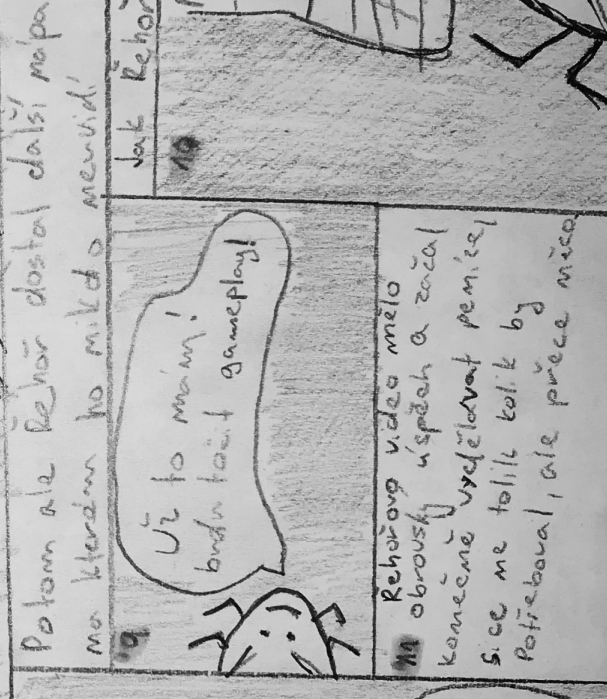 Potom ale Řehoř dostal další nápa
na kterém ho nikdo neuvidí
9
Už to mám!
budu točit gameplay!
Jak Řehoř
10
11 Řehořovo video mělo
obrovský úspěch a začal
konečně vydělávat peníze,
sice ne tolik kolik by
potřeboval, ale přece něco